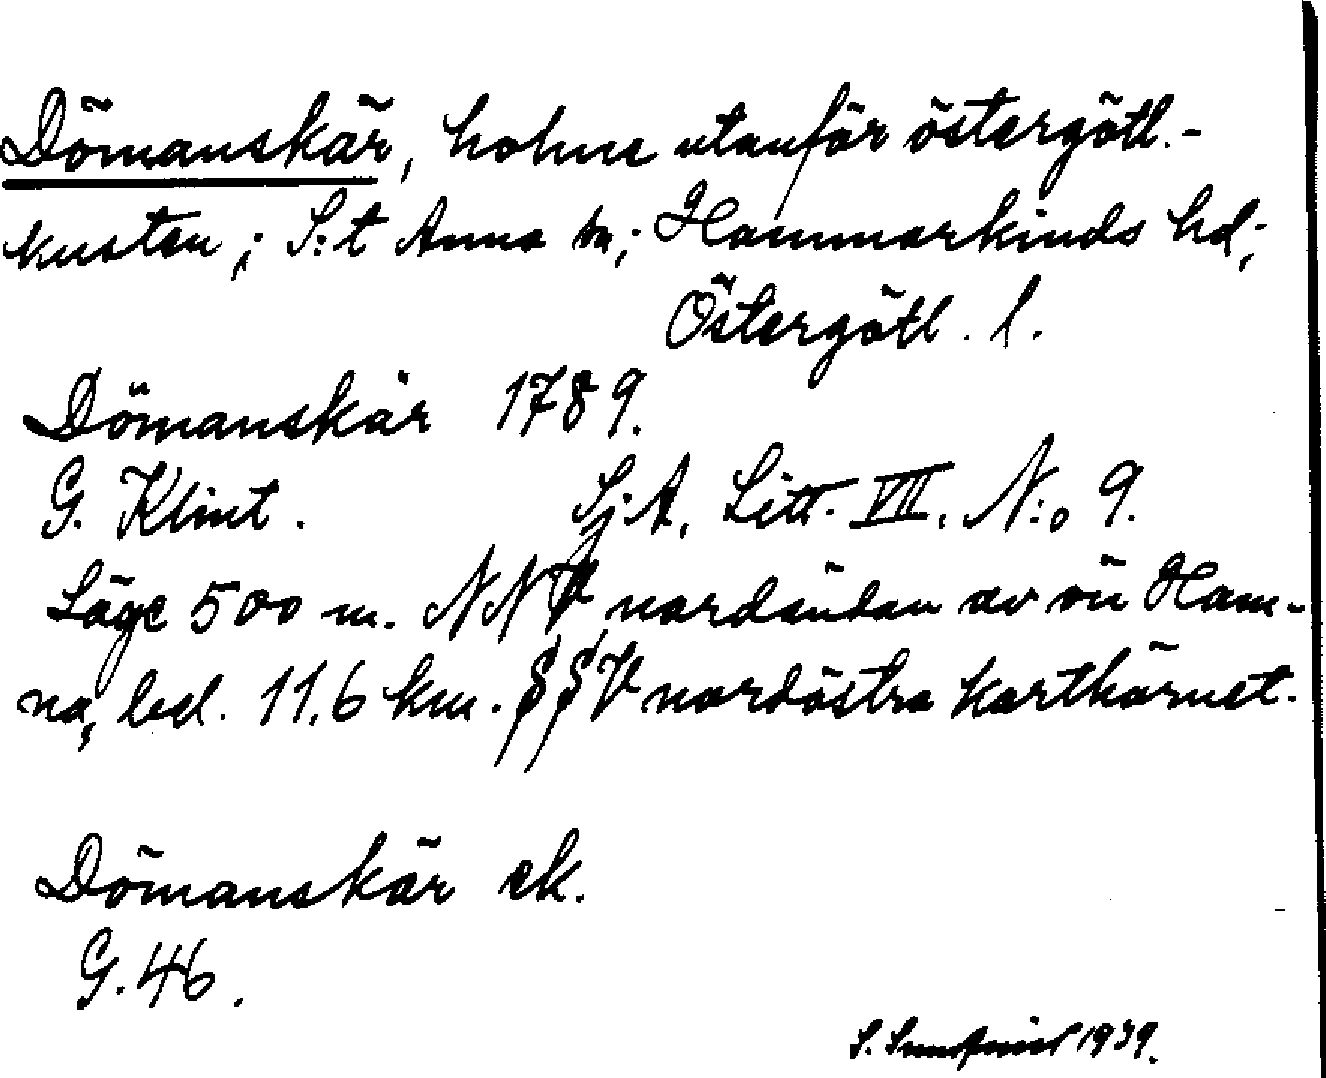 Dömanskär, holme utanför östergötl.-
kusten; S:t Anna sn; Hammarkinds hd;
Östergötl. l.
Dömanskär 1789.
G. Klint. Sj.A. Litt. VII. N:o 9.
Läge 500 m. NNV nordändan av ön Ham-
nö, bel. 11.6 km. SSV nordöstra karthörnet.
Dömanskär ek.
G. 46.
S. 1939.